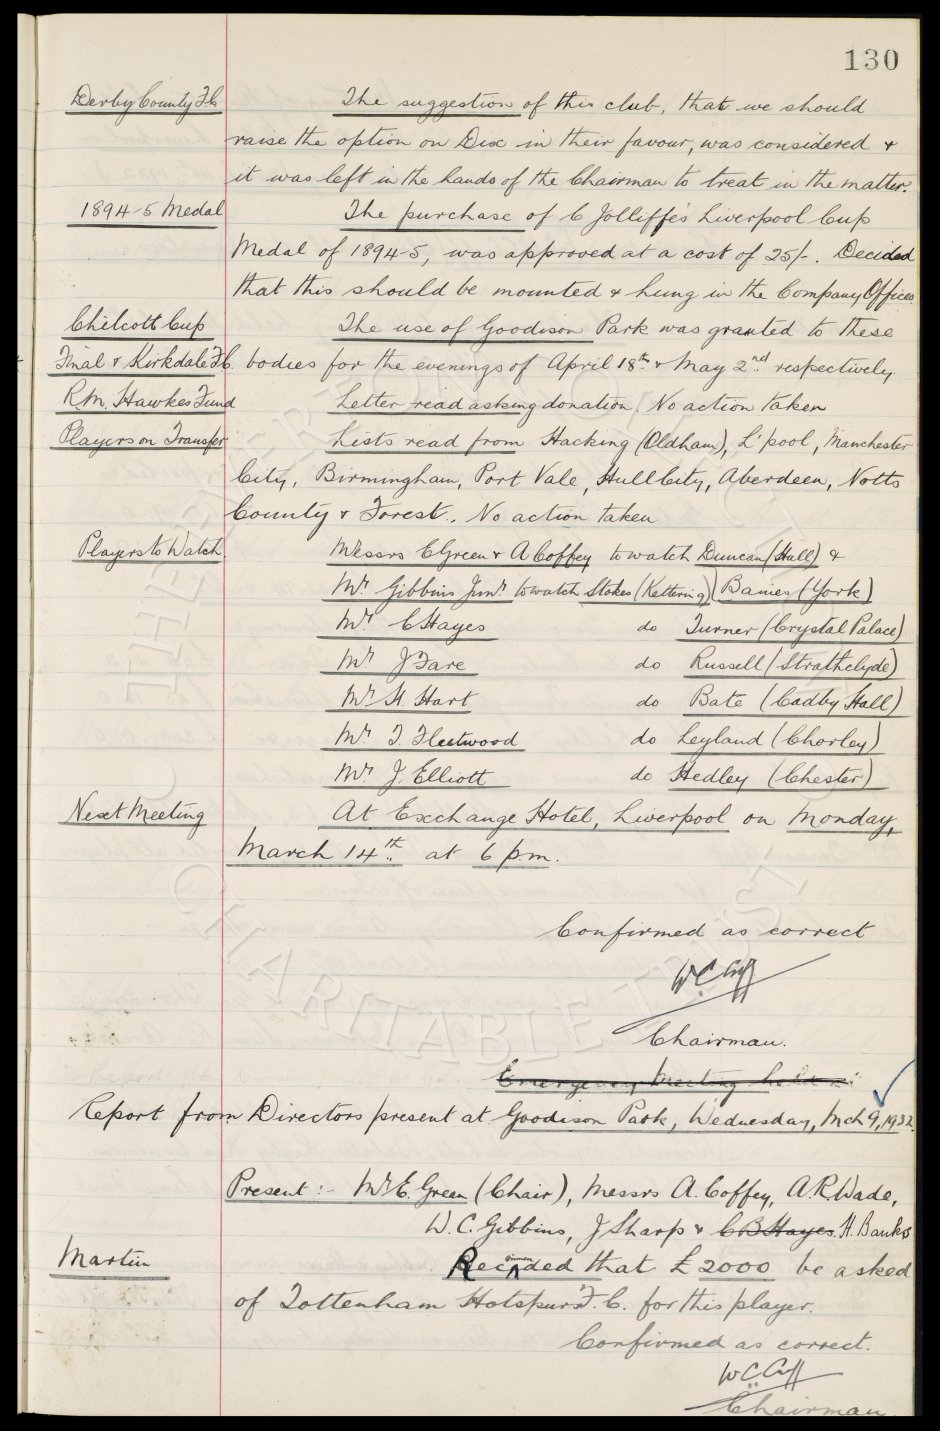 130
Derby County F.C. The suggestion of this club, that we should
raise the option on Dix in their favour, was considered &
it was left in the hands of the Chairman to treat in the matter.
1894-5 Medal The purchase of C Jolliffe's Liverpool Cup
Medal of 1894-5, was approved at a cost of 25/-. Decided
that this should be mounted & hung in the Company Offices.
Chilcott Cup The use of Goodison Park was granted to these
Final & Kirkdale F.C. bodies for the evenings of April 18th & May 2nd respectively
R.M. Hawkes Fund Letter read asking donation. No action taken
Players on Transfer Lists read from Hacking (Oldham), L'pool, Manchester
City, Birmingham, Port Vale, Hull City, Aberdeen, Notts
County & Forest. No action taken.
Players to Watch. Messrs E Green & A Coffey to watch Duncan (Hull) &
Mr. Gibbins Junr. to watch Stokes (Kettering) Baines (York)
Mr. C Hayes do Turner (Crystal Palace)
Mr. J Fare do Russell (Strathclyde)
Mr. H. Hart do Bate (Cadby Hall)
Mr. T. Fleetwood do Leyland (Chorley)
Mr. J. Elliott do Hedley (Chester)
Next Meeting At Exchange Hotel, Liverpool on Monday,
March 14th. at 6 p.m.
Confirmed as correct
W C Cuff
Chairman.
Emergency Meeting held
Report from Directors present at Goodison Park, Wednesday, Mch 9, 1932.
Present :- Mr E. Green (Chair), Messrs A. Coffey, A.R. Wade,
W.C. Gibbins, J Sharp & C B Hayes. H. Banks
Martin Recommended that £2000 be asked
of Tottenham Hotspurs F.C. for this player.
Confirmed as correct.
W C Cuff
Chairman.
THE EVERTON COLLECTION
CHARITABLE TRUST